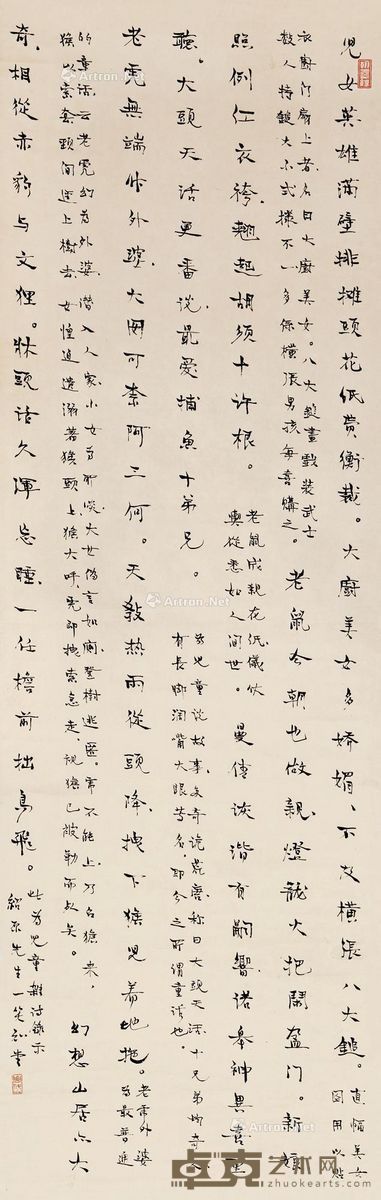 儿女英雄满壁排摊头花低费衡裁。大厨美女多娇媚、不及横张八大锤。直幅美女图用以贴
衣厨门扇上者、名曰大厨美女。八大锤画戏装武士
数人持锤大小式样不一、多系横张男孩每喜购之。老鼠今朝也做亲、灯笼火把闹盈门。新娘
照例红衣袴、翘起胡须十许根。老鼠成亲在低仪仗舆从悉如人间世。曼倩诙谐有嗣响诸皋神异喜重
听。大头天话更番说、最爱捕鱼十弟兄。为儿童说故事之奇诡荒唐称曰大头天话、十兄弟均奇
有长脚阔嘴大眼等名、即今之所谓童话也。
老虎无端作外婆、大囡可奈阿三何。天教热雨从头降、拽下猴儿着地拖。老虎外婆为最普通
的童话、云老虎幻为外婆、潜入人家、小女为所啖、大女伪言如厕、登树逃匿。虎不能上、乃召猴来、
猴以索套颈间逆上树去、女惶迫遗溺着猴头上猴大呼、虎即拽索急走、视猴已被勒而死矣。幻想山居亦大
奇、相从赤豹与文狸。牀头话久浑忘睡、一任檐前拙鸟飞。此为儿童杂诗录示
绍原先生一笑 知堂
卓克艺术网
www.zhuokearts.com
Artron.Net